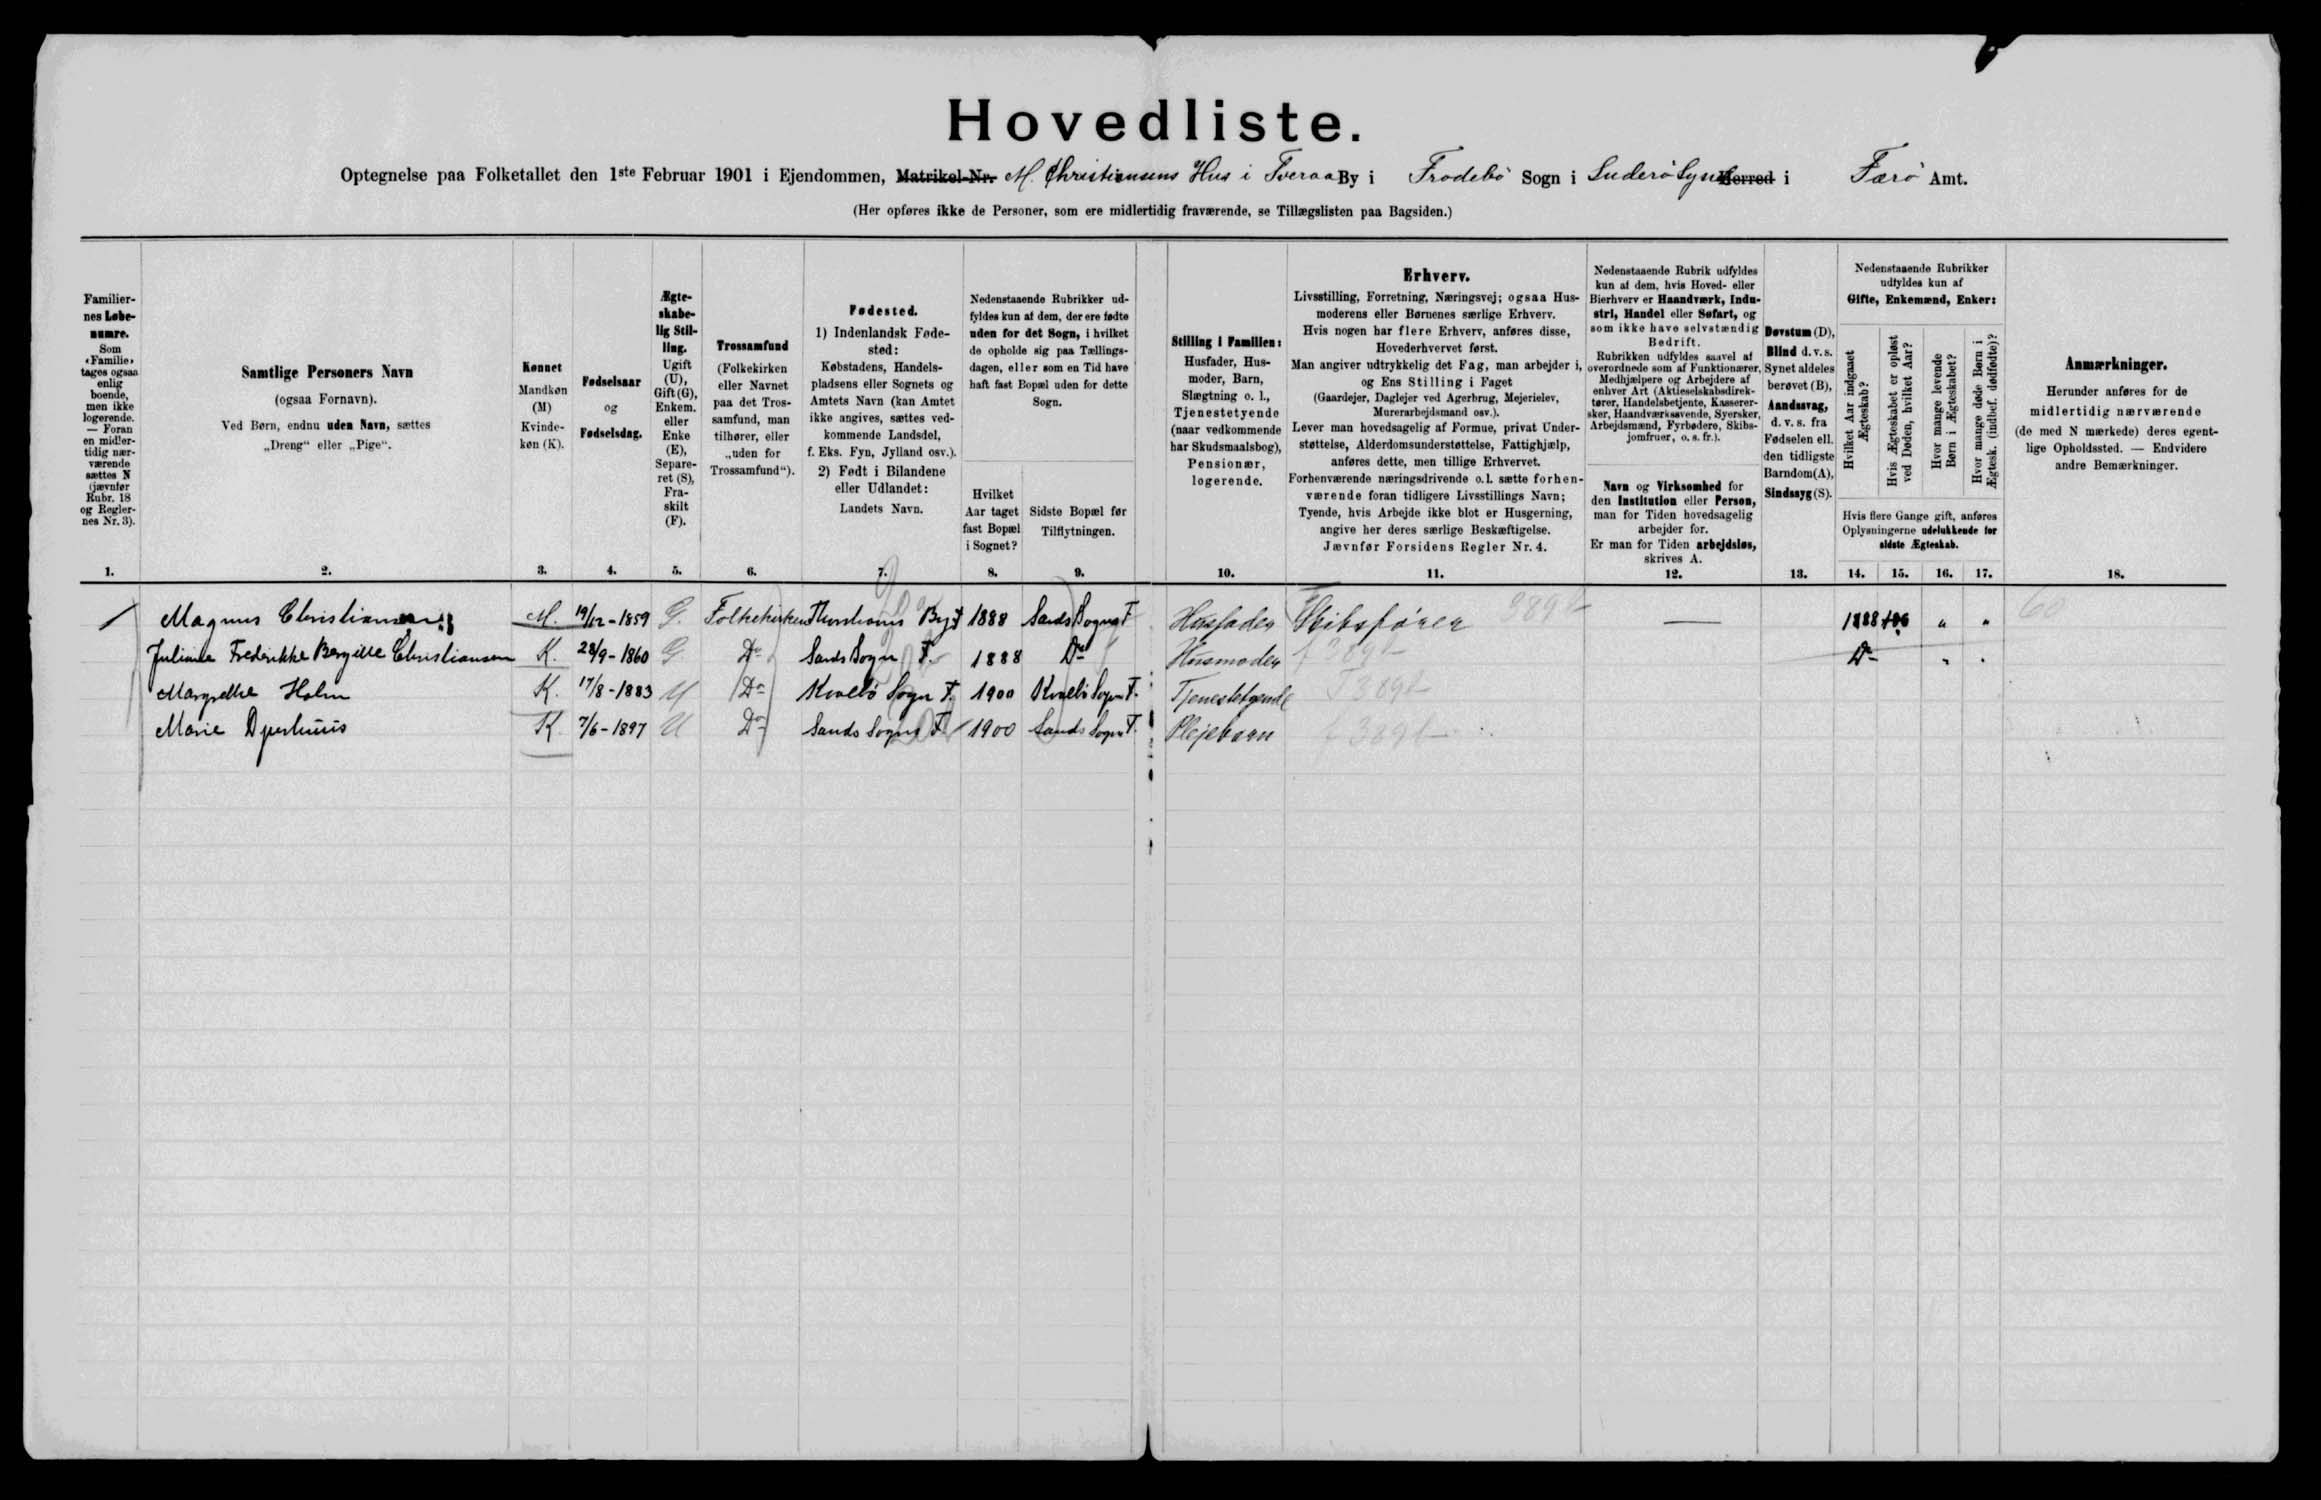 Hovedliste.
Optegnelse paa Folketallet den 1ste Februar 1901 i Ejendommen, Matrikel-Nr. M. Christiansens Hus i Tveraa By i Frodebö Sogn i Suderö Syssel Herred i Færö Amt.
(Her opføres ikke de Personer, som ere midlertidig fraværende, se Tillægslisten paa Bagsiden.)
Familier-
nes Løbe-
numre.
Som
«Familie»
tages ogsaa
enlig
boende,
men ikke
logerende.
— Foran
en midler-
tidig nær-
værende
sættes N
(jævnfør
Rubr. 18
og Regler-
nes Nr. 3).
1.
Samtlige Personers Navn
(ogsaa Fornavn).
Ved Børn, endnu uden Navn, sættes
„Dreng“ eller „Pige“.
2.
Kønnet
Mandkøn
(M)
Kvinde-
køn (K).
3.
Fødselsaar
og
Fødselsdag.
4.
Ægte-
skabe-
lig Stil-
ling.
Ugift
(U),
Gift (G),
Enkem.
eller
Enke
(E),
Separe-
ret (S),
Fra-
skilt
(F).
5.
Trossamfund
(Folkekirken
eller Navnet
paa det Tros-
samfund, man
tilhører, eller
„uden for
Trossamfund“).
6.
Fødested.
1) Indenlandsk Føde-
sted:
Købstadens, Handels-
pladsens eller Sognets og
Amtets Navn (kan Amtet
ikke angives, sættes ved-
kommende Landsdel,
f. Eks. Fyn, Jylland osv.).
2) Født i Bilandene
eller Udlandet:
Landets Navn.
7.
Nedenstaaende Rubrikker ud-
fyldes kun af dem, der ere fødte
uden for det Sogn, i hvilket
de opholde sig paa Tællings-
dagen, eller som en Tid have
haft fast Bopæl uden for dette
Sogn.
Hvilket
Aar taget
fast Bopæl
i Sognet?
8.
Sidste Bopæl før
Tilflytningen.
9.
Stilling i Familien:
Husfader, Hus-
moder, Barn,
Slægtning o. l.,
Tjenestetyende
(naar vedkommende
har Skudsmaalsbog),
Pensionær,
logerende.
10.
Erhverv.
Livsstilling, Forretning, Næringsvej; ogsaa Hus-
moderens eller Børnenes særlige Erhverv.
Hvis nogen har flere Erhverv, anføres disse,
Hovederhvervet først.
Man angiver udtrykkelig det Fag, man arbejder i,
og Ens Stilling i Faget
(Gaardejer, Daglejer ved Agerbrug, Mejerielev,
Murerarbejdsmand osv.).
Lever man hovedsagelig af Formue, privat Under-
støttelse, Alderdomsunderstøttelse, Fattighjælp,
anføres dette, men tillige Erhvervet.
Forhenværende næringsdrivende o. l. sætte forhen-
værende foran tidligere Livsstillings Navn;
Tyende, hvis Arbejde ikke blot er Husgerning,
angive her deres særlige Beskæftigelse.
Jævnfør Forsidens Regler Nr. 4.
11.
Nedenstaaende Rubrik udfyldes
kun af dem, hvis Hoved- eller
Bierhverv er Haandværk, Indu-
stri, Handel eller Søfart, og
som ikke have selvstændig
Bedrift.
Rubrikken udfyldes saavel af
overordnede som af Funktionærer,
Medhjælpere og Arbejdere af
enhver Art (Aktieselskabsdirek-
tører, Handelsbetjente, Kasserer-
sker, Haandværkssvende, Syersker,
Arbejdsmænd, Fyrbødere, Skibs-
jomfruer, o. s. fr.).
Navn og Virksomhed for
den Institution eller Person,
man for Tiden hovedsagelig
arbejder for.
Er man for Tiden arbejdsløs,
skrives A.
12.
Døvstum (D),
Blind d. v. s.
Synet aldeles
berøvet (B),
Aandssvag,
d. v. s. fra
Fødselen ell.
den tidligste
Barndom (A),
Sindssyg (S).
13.
Nedenstaaende Rubrikker
udfyldes kun af
Gifte, Enkemænd, Enker:
Hvilket Aar indgaaet
Ægteskab?
Hvis Ægteskabet er opløst
ved Døden, hvilket Aar?
Hvor mange levende
Børn i Ægteskabet?
Hvor mange døde Børn i
Ægtesk. (indbef. dødfødte)?
Hvis flere Gange gift, anføres
Oplysningerne udelukkende for
sidste Ægteskab.
14. 15. 16. 17.
Anmærkninger.
Herunder anføres for de
midlertidig nærværende
(de med N mærkede) deres egent-
lige Opholdssted. — Endvidere
andre Bemærkninger.
18.
Magnus Christiansen M. 19/12-1859 G. Folkekirken Thorshavns By F 1888 Sands Sogn F Husfader Skibsförer 389 — 1888 " " 60
Juliane Frederikke Bergitte Christiansen K. 28/9-1860 G Do Sands Sogn F. 1888 Do Husmoder f 389 Do " "
Margrethe Holm K. 17/8-1883 U Do Kvalbö Sogn F. 1900 Kvalbö Sogn F. Tjenestetyende T 389
Marie Djurhuus K. 7/6-1897 U Do Sands Sogn F 1900 Sands Sogn F. Plejebarn f 389